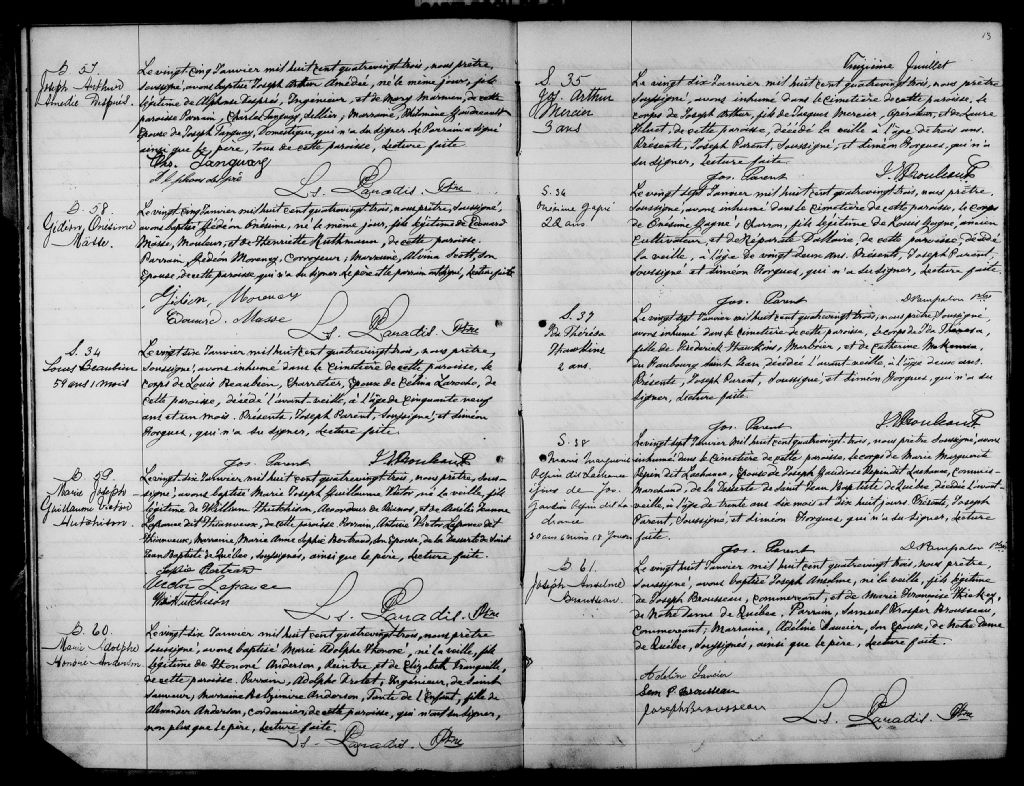 B 57.
Joseph Arthur
Amédée Després
Le vingt cinq Janvier mil huit cent quatrevingt trois, nous prêtre,
soussigné, avons baptisé Joseph Arthur Amédée, né le même jour, fils
légitime de Alphonse Després, Ingénieur, et de Mary de cette
paroisse Parrain, Charles Tanguay, sellier, Marraine, Philomène Gaudreault
Épouse de Joseph Tanguay, Domestique, qui n'a su signer. Le Parrain a signé
ainsi que le père, tous de cette paroisse, Lecture faite
Chs. Tanguay
Alphonse Després
Ls. Paradis. Ptre
B. 58.
Gidéon, Onésime
Masse.
Le vingt cinq Janvier mil huit cent quatrevingt trois, nous, prêtre, soussigné,
avons baptisé Gédéon Onésime, né le même jour, fils légitime de Edouard
Masse, Mouleur, et de Henriette de cette paroisse.
Parrain, Gédéon Morency, Corroyeur; Marraine, Alvina Scott, son
Épouse, de cette paroisse qui n'a su signer. Le père et le parrain ont signé, Lecture faite
Gidéon Morency
Edouard Masse
Ls. Paradis. Ptre
S. 34
Louis Beaubien
59 ans 1 mois
Le vingt six Janvier mil huit cent quatrevingt trois, nous prêtre,
Soussigné, avons inhumé dans le Cimetière de cette paroisse, le
corps de Louis Beaubien, Charretier, Époux de Célina de
cette paroisse, décédé l'avant veille, à l'âge de Cinquante neuf
ans et un mois. Présents, Joseph Parent, soussigné, et Siméon
Forgues, qui n'a su signer, Lecture faite.
Jos. Parent
B. 59.
Marie Joseph
Guillaume Victor
Hutchison.
Le vingt six Janvier mil huit cent quatrevingt trois, nous prêtre, sous-
signé, avons baptisé Marie Joseph Guillaume Victor né la veille, fils
légitime de William Hutchison, Accordeur de Pianos, et de
Lafrance dit de cette paroisse. Parrain, Victor Lafrance dit
Marraine, Marie Anne Sophie Bertrand, son Épouse, de la Desserte de Saint
Jean Baptiste de Québec, soussignés, ainsi que le père, Lecture faite.
Sophie Bertrand
Victor Lafrance
Wm Hutchison
Ls. Paradis. Ptre
B. 60.
Marie Adolphe
Honoré Anderson
Le vingt six Janvier mil huit cent quatrevingt trois, nous prêtre
soussigné, avons baptisé Marie Adolphe Honoré, né la veille, fils
légitime de Honoré Anderson, Peintre et de Elizabeth Tranquille,
de cette paroisse. Parrain, Adolphe Drolet, Ingénieur, de Saint
Sauveur, Marraine Anderson, Tante de l'Enfant, fille de
Alexander Anderson, cordonnier, de cette paroisse, qui n'ont su signer,
non plus que le père, Lecture faite.
Ls. Paradis. Ptre
13
Treizième Juillet
S. 35
Jos. Arthur
Mercier
3 ans
Le vingt six Janvier mil huit cent quatrevingt trois, nous, prêtre
soussigné, avons inhumé dans le Cimetière de cette paroisse, le
corps de Joseph Arthur, fils de Jacques Mercier, Opérateur, et de Laure
Huot, de cette paroisse, décédé la veille à l'âge de trois ans.
Présents, Joseph Parent, soussigné, et Siméon Forgues, qui n'a
su signer, Lecture faite.
Jos. Parent
S. 36
Onésime Gagné
22 ans.
Le vingt sept Janvier mil huit cent quatrevingt trois, nous, prêtre,
soussigné, avons inhumé dans le cimetière de cette paroisse, le corps
de Onésime Gagné, Charron, fils légitime de Louis Gagné, ancien
Cultivateur, et de Réparate Dallaire, de cette paroisse, décédé
la veille, à l'âge de vingt deux ans. Présents, Joseph Parent,
soussigné et Siméon Forgues, qui n'a su signer, Lecture faite.
Jos. Parent
S. 37
Ida Thérèsa
Hawkins
2 ans.
Le vingt sept Janvier mil huit cent quatrevingt trois, nous prêtre, soussigné,
avons inhumé dans le cimetière de cette paroisse, le corps de Ida Thérèsa,
fille de Frederick Hawkins, Marbrier, et de Catherine McKenna,
du Faubourg Saint Jean, décédée l'avant veille, à l'âge deux ans.
Présents, Joseph Parent, soussigné, et Siméon Forgues, qui n'a su
signer, Lecture faite.
Jos. Parent
S. 38
Marie Marguerite
Pepin dit Lachance
Épouse de Jos.
Jaudoin Pepin dit La-
chance
30 ans 6 mois 18 jours
Le vingt sept Janvier mil huit cent quatrevingt trois, nous prêtre soussigné, avons
inhumé dans le Cimetière de cette paroisse, le corps de Marie Marguerite
Pepin dit Lachance, Épouse de Joseph Pepin dit Lachance, Commis-
Marchand, de la Desserte de Saint Jean Baptiste de Québec, décédée l'avant
veille, à l'âge de trente ans six mois et dix huit jours Présents, Joseph
Parent, soussigné, et Siméon Forgues, qui n'a su signer, Lecture
faite.
Jos. Parent
B. 61.
Joseph Anselme
Brousseau.
Le vingt huit Janvier mil huit cent quatrevingt trois, nous prêtre,
soussigné, avons baptisé Joseph Anselme, né la veille, fils légitime
de Joseph Brousseau, commerçant, et de Marie Françoise Hickey,
de Notre Dame de Québec. Parrain, Samuel Prosper Brousseau,
Commerçant; Marraine, Adéline Savoir, son Épouse, de Notre Dame
de Québec, soussignés, ainsi que le père, Lecture faite.
Sam P. Brousseau
Joseph Brousseau
Ls. Paradis. Ptre